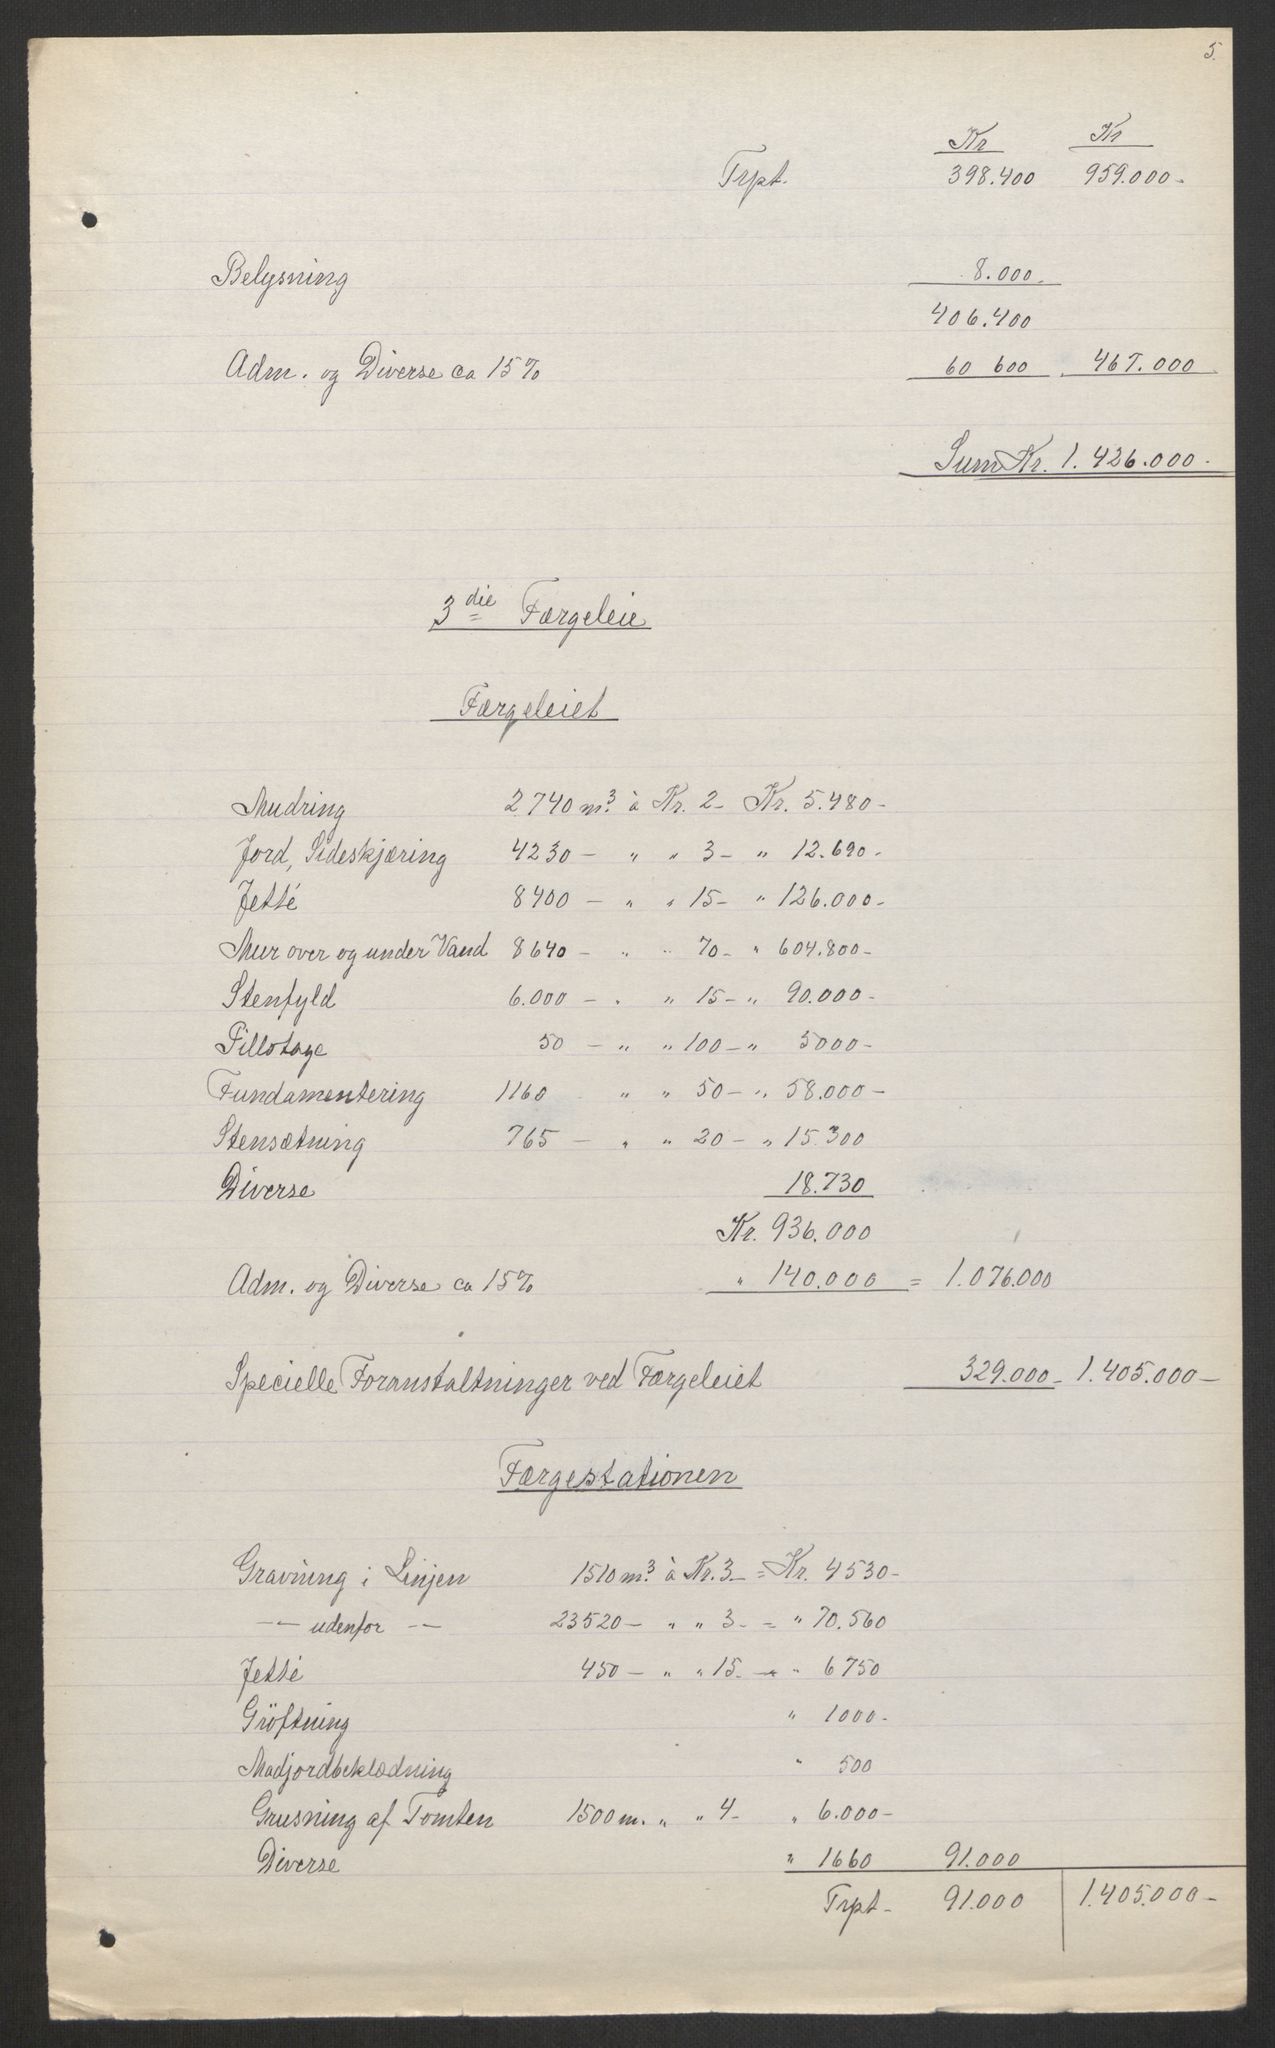 5.
Kr Kr
Trpt. 398.400 959.000-
Belysning 8.000.
406.400
Adm. og Diverse ca 15% 60 600 467.000
Sum Kr. 1.426.000.
3die Færgeleie
Færgeleiet
Mudring 2740 m³. à Kr. 2- Kr. 5.480-
Jord, Sideskjæring 4230 - " " 3- " 12.690-
Jetté 8400 - " " 15- " 126.000-
Mur over og under Vand 8640 - " " 70- " 604.800-
Stenfyld 6.000 - " " 15- " 90.000-
Pillotage 50 - " " 100- " 5000-
Fundamentering 1160 " " 50- " 58.000-
Stensætning 765 - " " 20- " 15.300
Diverse 18.730
Kr. 936.000
Adm. og Diverse ca 15% " 140.000 = 1.076.000
Specielle Foranstaltninger ved Færgeleiet 329.000- 1.405.000-
Færgestationen
Gravning i Linjen 1510 m³. à Kr. 3- = Kr. 4530-
-"- udenfor -"- 23520- " " 3- = " 70.560
Jetté 450- " " 15- = " 6750
Gröftning " 1000-
Madjordbeklædning " 500
Grusning af Tomten 1500 m. " " 4- " 6.000-
Diverse " 1660 91.000
Trpt- 91.000 1.405.000-